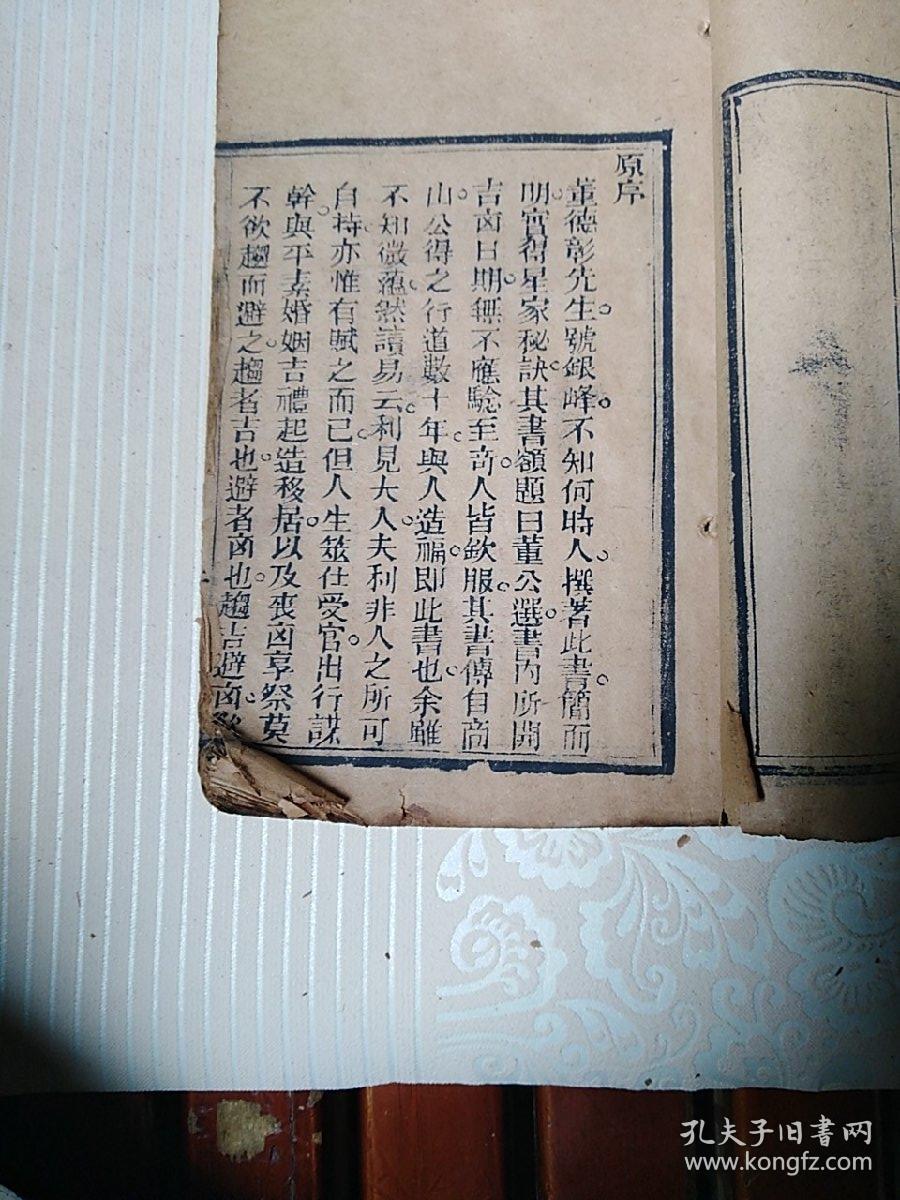 原序
董德彰先生。號銀峰。不知何時人。撰著此書。簡而
明。實得星家秘訣。其書額題曰董公選。書內所開
吉凶日期。無不應驗。至奇。人皆欽服。其書傳自商
山公得之。行道數十年。與人造福。即此書也。余雖
不知微蘊。然讀易云。利見大人。夫利非人之所可
自持。亦惟有賦之而已。但人生筮仕受官。出行謀
幹。與平素婚姻吉禮。起造移居。以及喪凶享祭。莫
不欲趨而避之。趨者吉也。避者凶也。趨吉避凶。
孔夫子旧书网
www.kongfz.com